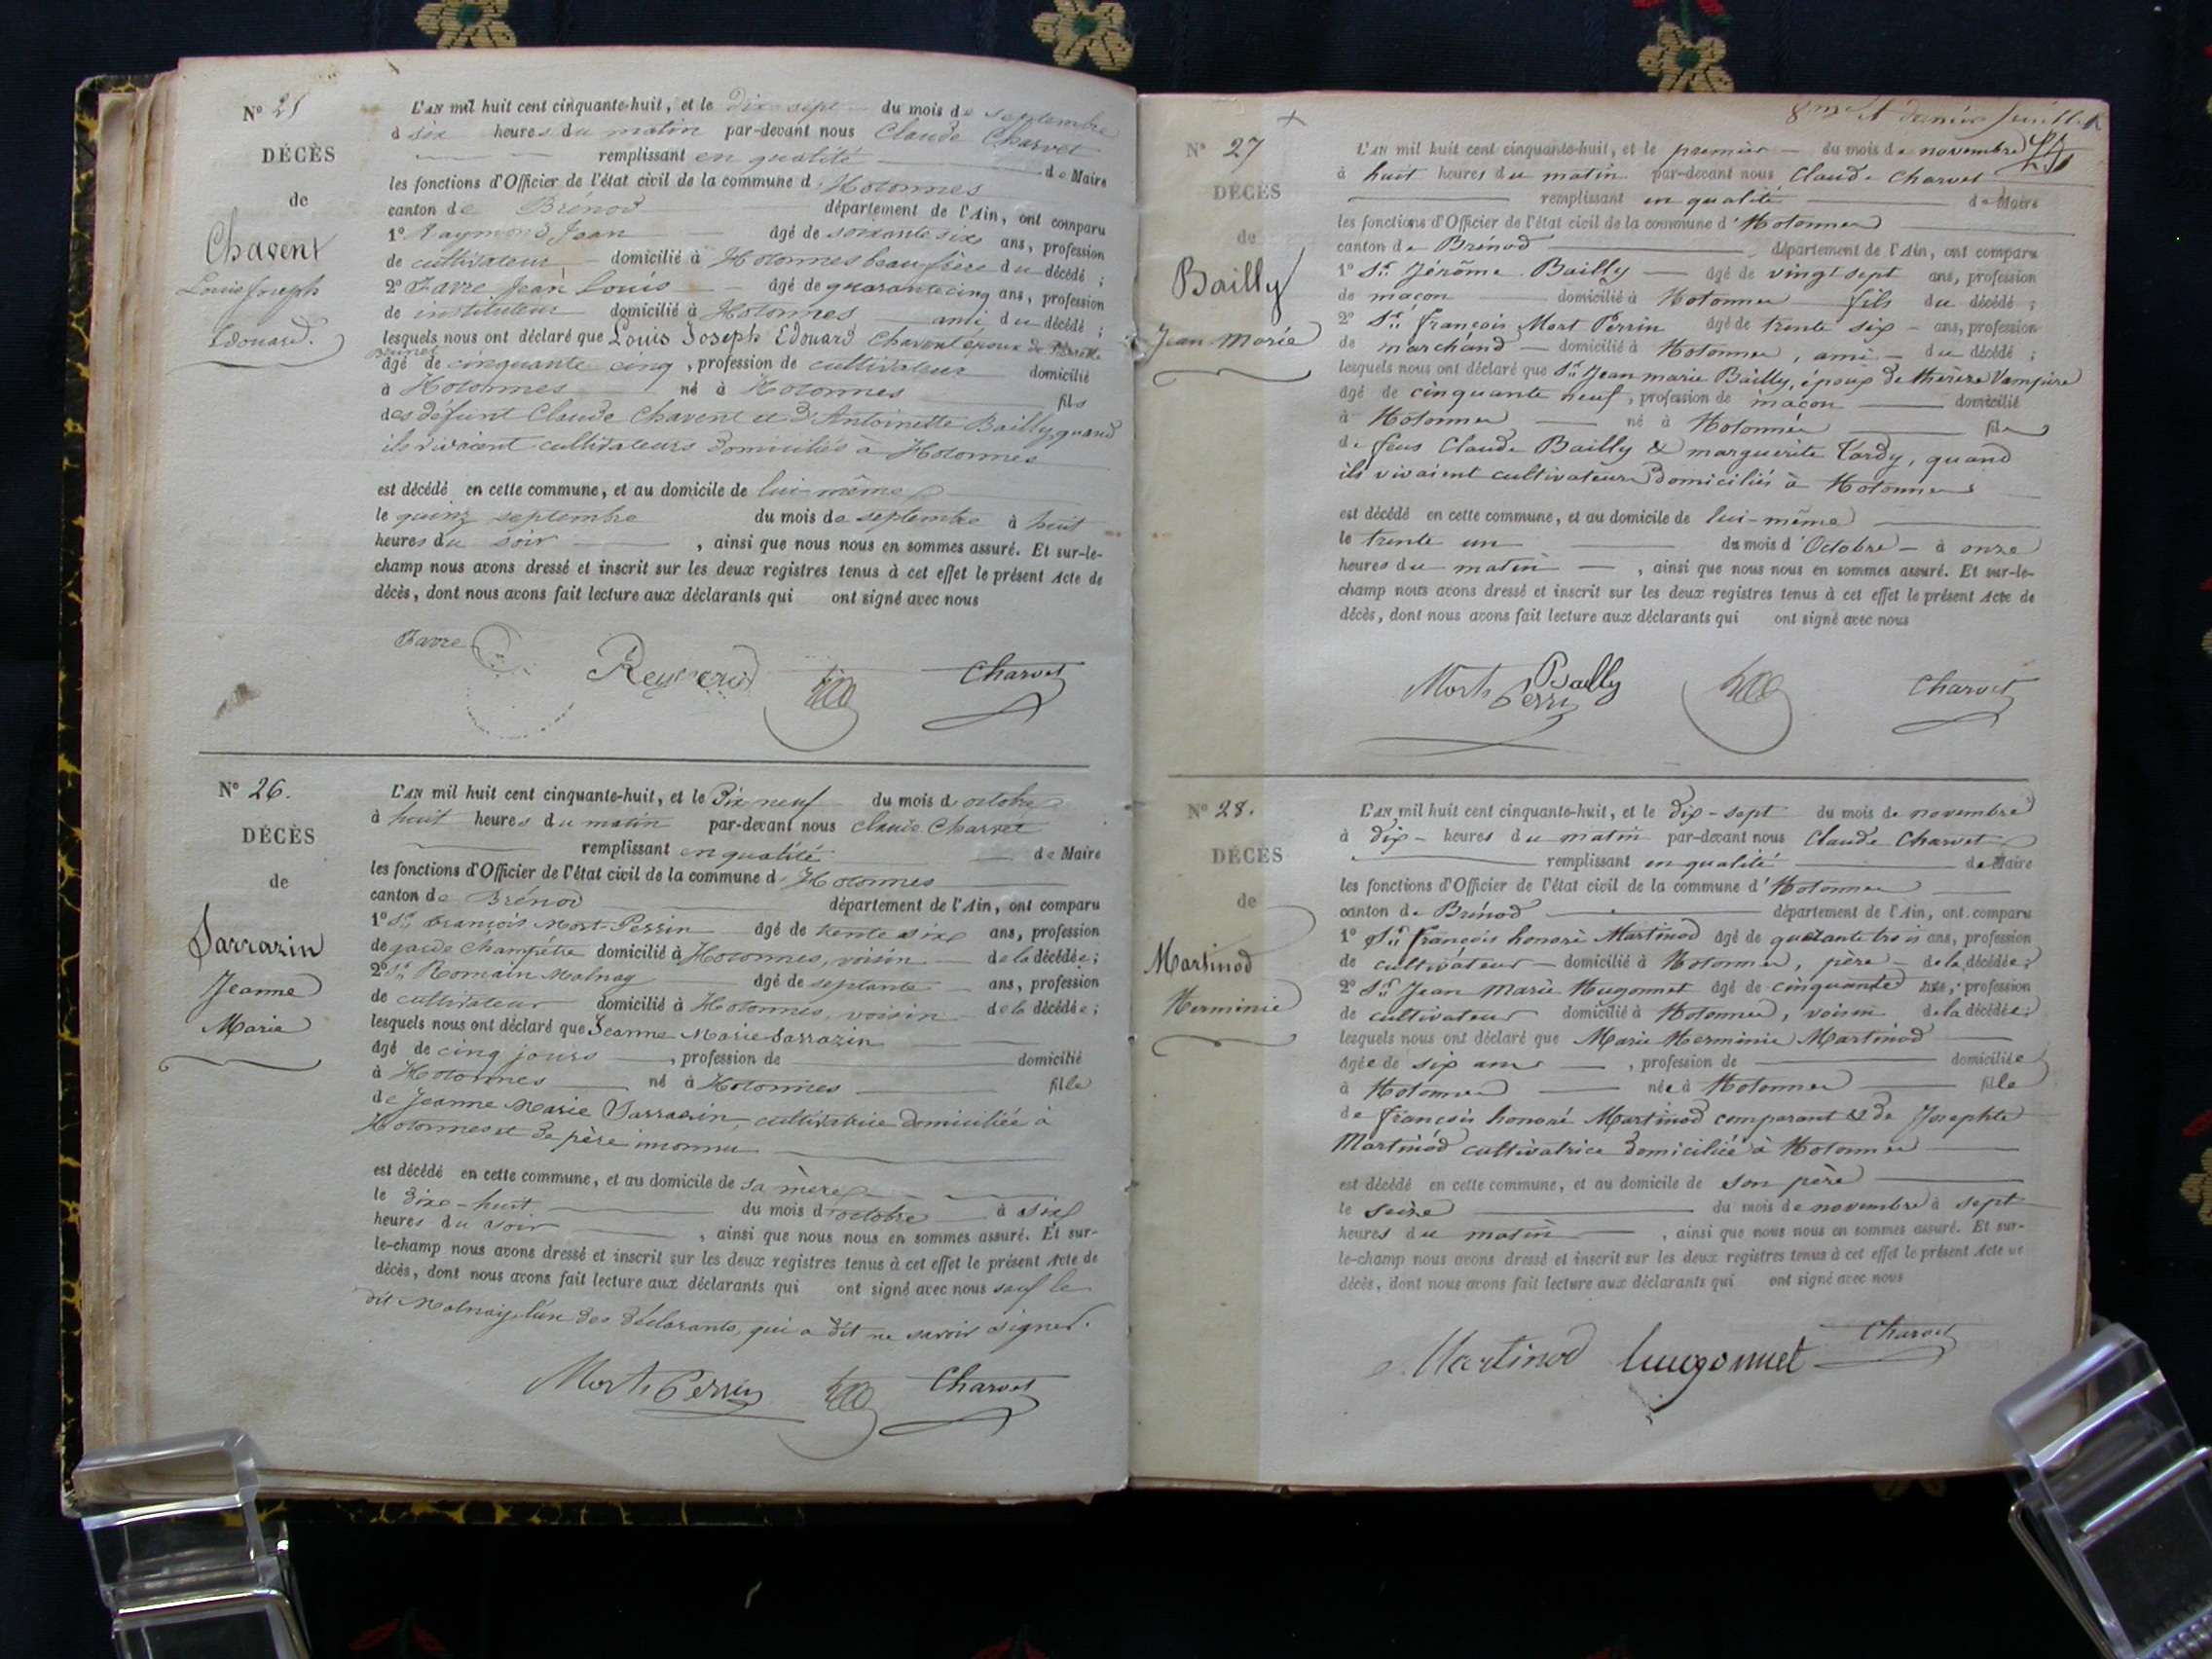 N° 25
DÉCÈS
de
Chavent
Louis Joseph
Edouard.
L'AN mil huit cent cinquante-huit, et le dix sept du mois de septembre
à six heures du matin par-devant nous Claude Charvet
remplissant en qualité de Maire
les fonctions d'Officier de l'état civil de la commune d'Hotonnes
canton de Brénod département de l'Ain, ont comparu
1° Raymond Jean âgé de soixante six ans, profession
de cultivateur domicilié à Hotonnes beau frère du décédé ;
2° Favre Jean Louis âgé de quarante cinq ans, profession
de instituteur domicilié à Hotonnes ami du décédé ;
lesquels nous ont déclaré que Louis Joseph Edouard Chavent époux de
âgé de cinquante cinq, profession de cultivateur domicilié
à Hotonnes né à Hotonnes fils
des défunt Claude Chavent et d'Antoinette Bailly, quand
ils vivaient cultivateurs domiciliés à Hotonnes
est décédé en cette commune, et au domicile de lui-même
le quinz septembre du mois de septembre à huit
heures du soir, ainsi que nous nous en sommes assuré. Et sur-le-
champ nous avons dressé et inscrit sur les deux registres tenus à cet effet le présent Acte de
décès, dont nous avons fait lecture aux déclarants qui ont signé avec nous
Favre Charvet
N° 26.
DÉCÈS
de
Sarrazin
Jeanne
Marie
L'AN mil huit cent cinquante-huit, et le dix neuf du mois d'octobre
à huit heures du matin par-devant nous Claude Charvet
remplissant en qualité de Maire
les fonctions d'Officier de l'état civil de la commune d'Hotonnes
canton de Brénod département de l'Ain, ont comparu
1° Sr. François Mort-Perrin âgé de trente six ans, profession
de garde champêtre domicilié à Hotonnes, voisin de la décédée ;
2° Sr. Romain Malnay âgé de septante ans, profession
de cultivateur domicilié à Hotonnes, voisin de la décédée ;
lesquels nous ont déclaré que Jeanne Marie Sarrazin
âgé de cinq jours, profession de domicilié
à Hotonnes né à Hotonnes fille
de Jeanne Marie Sarrazin, cultivatrice domiciliée à
Hotonnes et de père inconnu
est décédé en cette commune, et au domicile de sa mère
le dix-huit du mois d'octobre à six
heures du soir, ainsi que nous nous en sommes assuré. Et sur-
le-champ nous avons dressé et inscrit sur les deux registres tenus à cet effet le présent Acte de
décès, dont nous avons fait lecture aux déclarants qui ont signé avec nous sauf le
dit Malnay, l'un des déclarants, qui a dit ne savoir signer.
Mort Perrin Charvet
8me et dernier feuillet
N° 27
DÉCÈS
de
Bailly
Jean Marie
L'AN mil huit cent cinquante-huit, et le premier du mois de novembre
à huit heures du matin par-devant nous Claude Charvet
remplissant en qualité de Maire
les fonctions d'Officier de l'état civil de la commune d'Hotonnes
canton de Brénod département de l'Ain, ont comparu
1° Sr. Jérôme Bailly âgé de vingt sept ans, profession
de maçon domicilié à Hotonnes fils du décédé ;
2° Sr. François Mort Perrin âgé de trente six ans, profession
de marchand domicilié à Hotonnes, ami du décédé ;
lesquels nous ont déclaré que Sr. Jean marie Bailly, époux de thérèze Vampire
âgé de cinquante neuf, profession de maçon domicilié
à Hotonnes né à Hotonnes fils
de feus Claude Bailly & marguerite Tardy, quand
ils vivaient cultivateurs domiciliés à Hotonnes
est décédé en cette commune, et au domicile de lui-même
le trente un du mois d'Octobre à onze
heures du matin, ainsi que nous nous en sommes assuré. Et sur-le-
champ nous avons dressé et inscrit sur les deux registres tenus à cet effet le présent Acte de
décès, dont nous avons fait lecture aux déclarants qui ont signé avec nous
Mort Perrin Bailly Charvet
N° 28.
DÉCÈS
de
Martinod
Herminie
L'AN mil huit cent cinquante-huit, et le dix-sept du mois de novembre
à dix heures du matin par-devant nous Claude Charvet
remplissant en qualité de Maire
les fonctions d'Officier de l'état civil de la commune d'Hotonnes
canton de Brénod département de l'Ain, ont comparu
1° Sr. françois honoré Martinod âgé de quarante trois ans, profession
de cultivateur domicilié à Hotonnes, père de la décédée ;
2° Sr. Jean Marie Hugonnet âgé de cinquante ans, profession
de cultivateur domicilié à Hotonnes, voisin de la décédée ;
lesquels nous ont déclaré que Marie Herminie Martinod
âgée de six ans, profession de domiciliée
à Hotonnes née à Hotonnes fille
de françois honoré Martinod comparant & de Josephte
Martinod cultivatrice domiciliée à Hotonnes
est décédé en cette commune, et au domicile de son père
le seize du mois de novembre à sept
heures du matin, ainsi que nous nous en sommes assuré. Et sur-
le-champ nous avons dressé et inscrit sur les deux registres tenus à cet effet le présent Acte de
décès, dont nous avons fait lecture aux déclarants qui ont signé avec nous
Martinod hugonnet Charvet